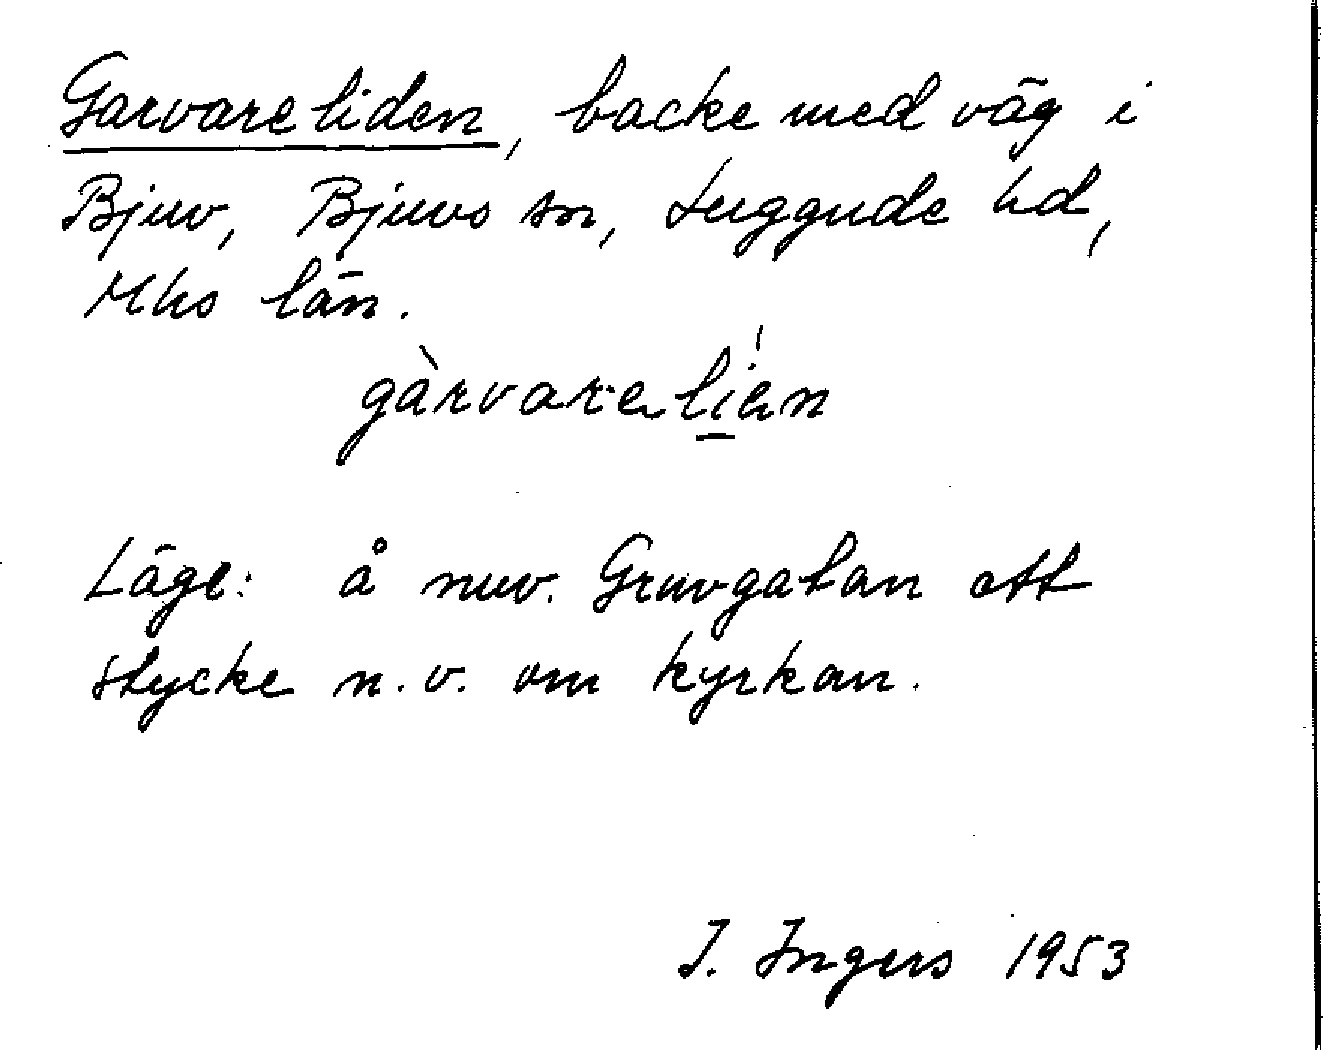 Garvareliden, backe med väg i
Bjuv, Bjuvs sn, Luggude hd,
Mhs län.
gàrvarelién
Läge: å nuv. Gruvgatan ett
stycke n.v. om kyrkan.
I. Ingers 1953